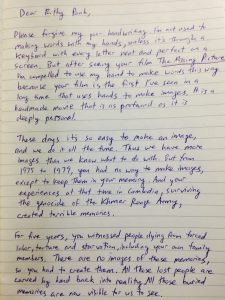 Dear Rithy Panh,
Please forgive my poor handwriting. I'm not used to
making words with my hands, unless it's through a
keyboard with every letter neat and perfect on a
screen. But after seeing your film The Missing Picture
I'm compelled to use my hand to make words this way
because your film is the first I've seen in a
long time that uses hands to make images. It is a
handmade movie that is as profound as it is
deeply personal.
These days it's so easy to make an image,
and we do it all the time. Thus we have more
images than we know what to do with. But from
1975 to 1979, you had no way to make images,
except to keep them in your memory. And your
experiences at that time in Cambodia, surviving
the genocide of the Khmer Rouge Army,
created terrible memories.
For five years, you witnessed people dying from forced
labor, torture and starvation, including your own family
members. There are no images of these memories,
so you had to create them. All these lost people are
carved by hand back into reality. All those buried
memories are now visible for us to see.